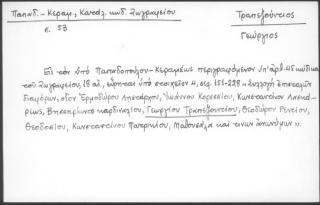 Παπαδ.- Κεραμ., Καταλ. κωδ. Ζωγραφείου
σ. 53
Τραπεζούντιος
Γεώργιος
Εἰς τὸν ὑπὸ Παπαδοπούλου-Κεραμέως περιγραφόμενον ὑπ' ἀρθ. 45 κώδικα
τοῦ Ζωγραφείου, 18 αἰ., εὕρηται ὑπὸ στοιχεῖον 4, σελ. 151-228 "Συλλογὴ ἐπιστολῶν
διαφόρων, οἷον Ἑρμοδώρου Ληστάρχου, Ἰωάννου Κορεσσίου, Κωνσταντίνου Λασκά-
ρεως, Βησσαρίωνος καρδιναλίου, Γεωργίου Τραπεζουντίου, Θεοδώρου Ρεντίου,
Θεοδοσίου, Κωνσταντίνου Πατρικίου, Μαθουσάλα καὶ τινων ἀνωνύμων".